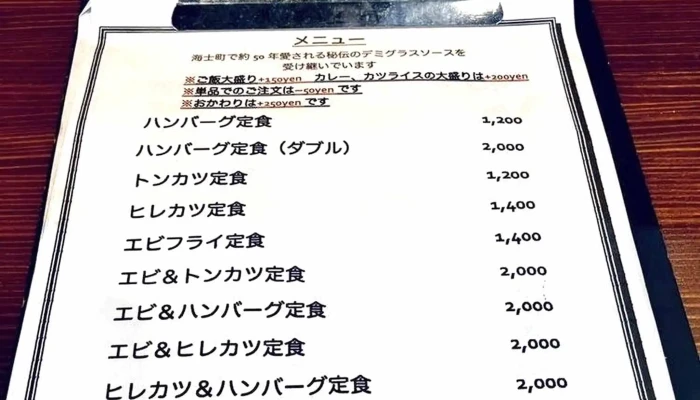 メニュー
海士町で約 50 年愛される秘伝のデミグラスソースを
受け継いでいます
※ご飯大盛り+150yen カレー、カツライスの大盛りは+200yen
※単品でのご注文は−50yen です
※おかわりは+250yen です
ハンバーグ定食 1,200
ハンバーグ定食（ダブル） 2,000
トンカツ定食 1,200
ヒレカツ定食 1,400
エビフライ定食 1,400
エビ＆トンカツ定食 2,000
エビ＆ハンバーグ定食 2,000
エビ＆ヒレカツ定食 2,000
ヒレカツ＆ハンバーグ定食 2,000